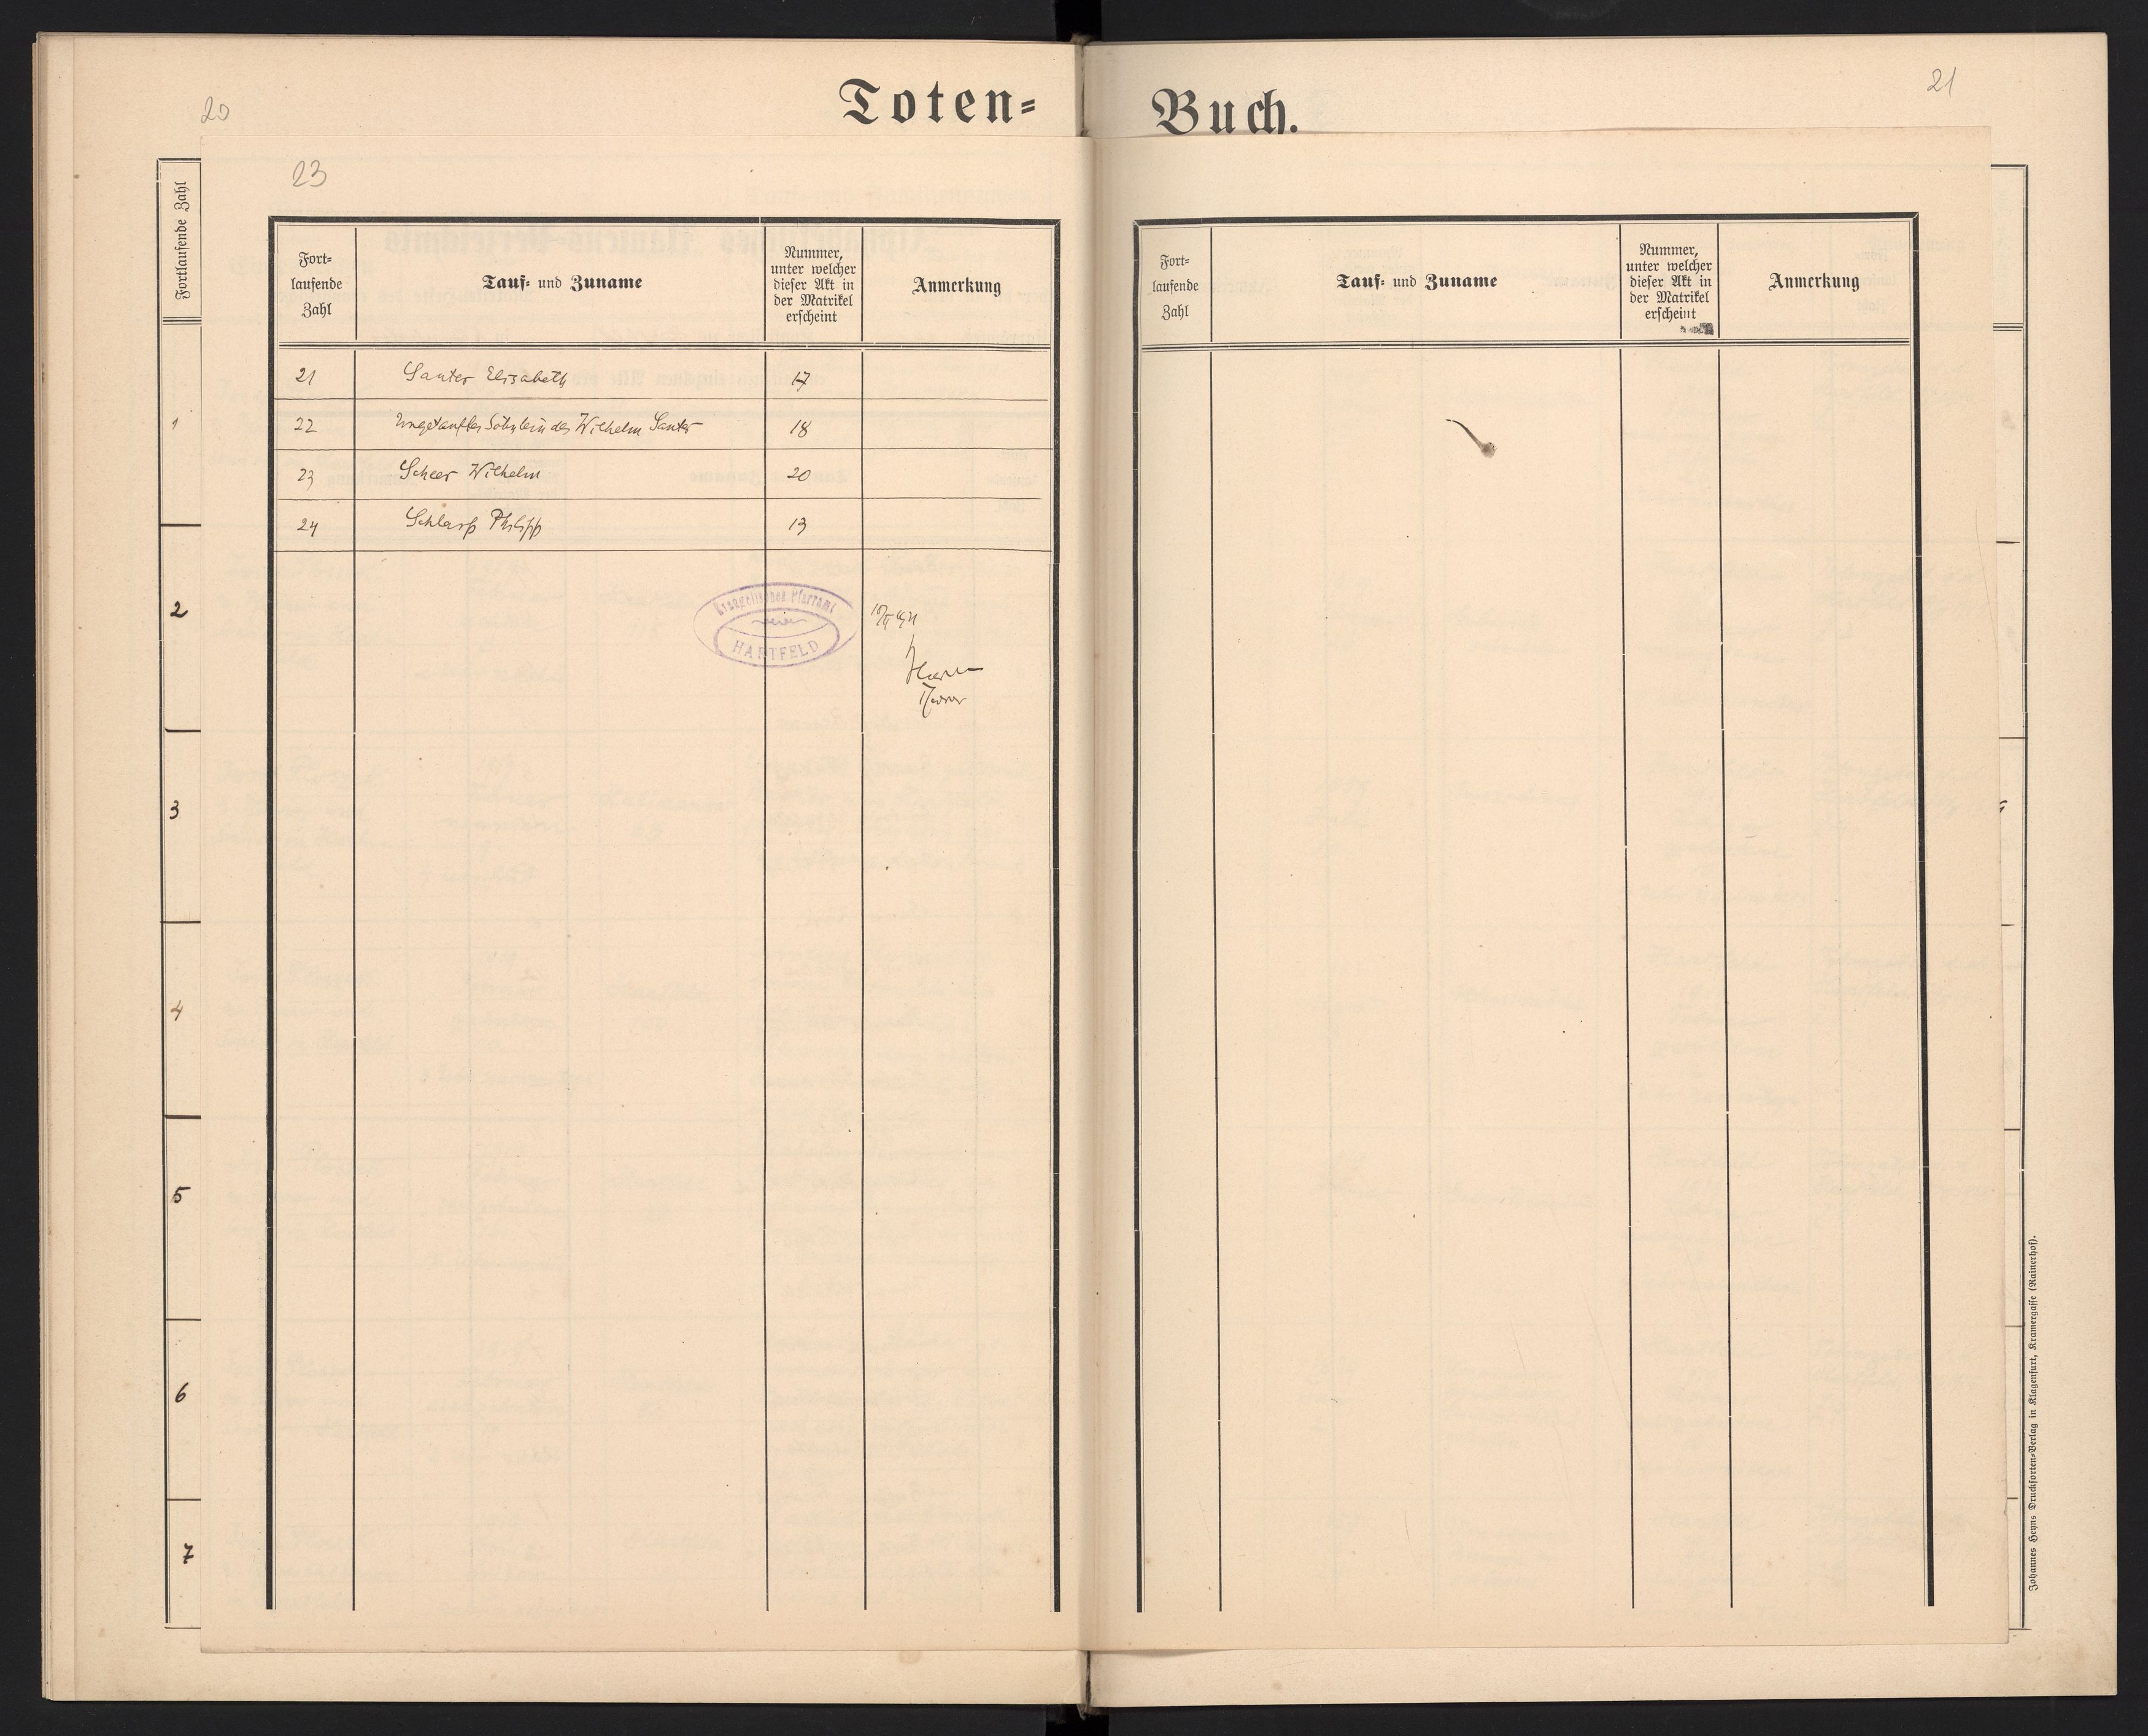 20
Toten=
Buch.
21
23
Fortlaufende Zahl
Fort=
laufende
Zahl
Tauf= und Zuname
Nummer,
unter welcher
dieser Akt in
der Matrikel
erscheint
Anmerkung
21 Sauter Elisabeth 17
22 Ungetauftes Söhnlein des Wilhelm Sauter 18
23 Scheer Wilhelm 20
24 Schlarp Philipp 13
Evangelisches Pfarramt
HARTFELD
1
2
3
4
5
6
7
Fort=
laufende
Zahl
Tauf= und Zuname
Nummer,
unter welcher
dieser Akt in
der Matrikel
erscheint
Anmerkung
Johannes Heyns Drucksorten=Verlag in Klagenfurt, Kramergasse (Rainerhof).